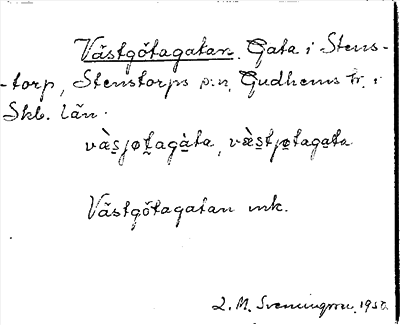 Västgötagatan. Gata i Stens-
-torp, Stenstorps sn, Gudhems hd i
Skb. län.
vàs̱jøṯagàta, væ̀s̱tjøtagata
Västgötagatan mk.